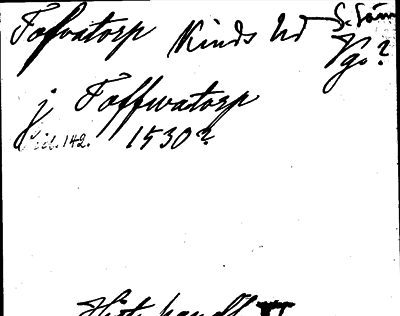 Tofvatorp Kinds hd S. Säm
Vg.?
j Toffwatorp
142. 1530?
Hist. handl. II